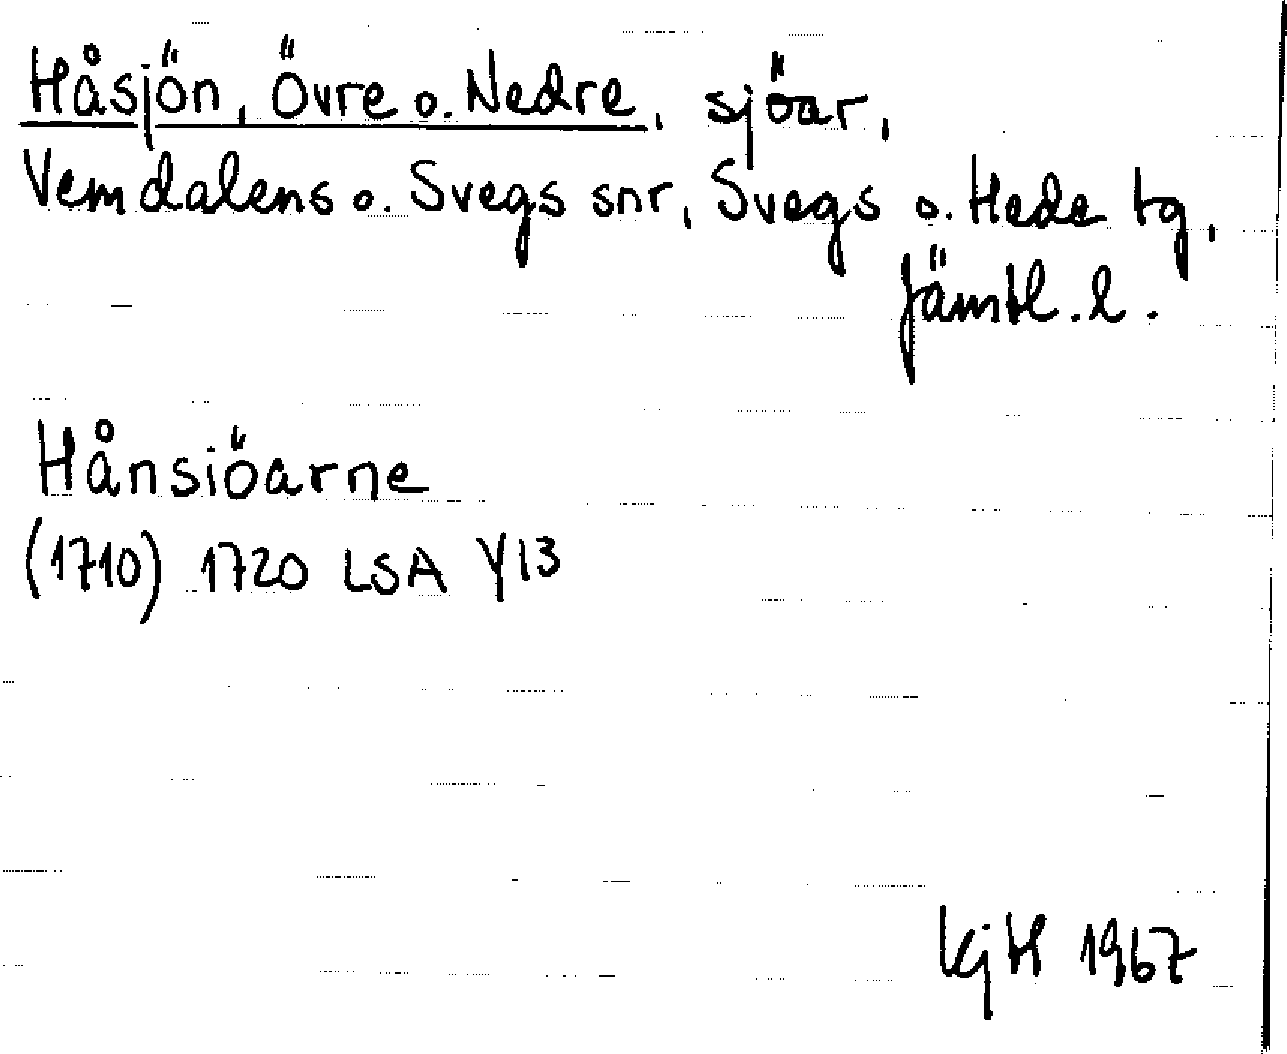 Håsjön, Övre o. Nedre, sjöar,
Vemdalens o. Svegs snr, Svegs o. Hede tg,
Jämtl. l.
Hånsiöarne
(1710) 1720 LSA Y13
KjH 1967